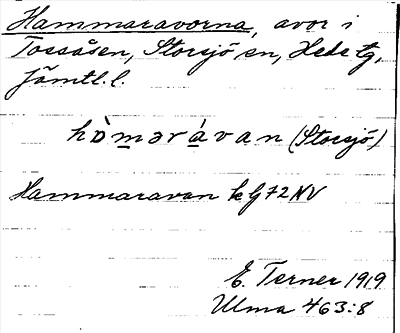 Hammaravorna, avor i
Tossåsen, Storsjö sn, Hede tg,
Jämtl. l.
hò̱mərá̱van (Storsjö)
Hammaravan k G72NV
E. Terner 1919
Ulma 463:8